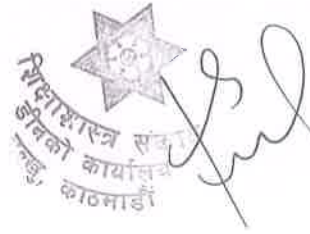 शिक्षाशास्त्र संकाय
डीनको कार्यालय
काठमाडौं